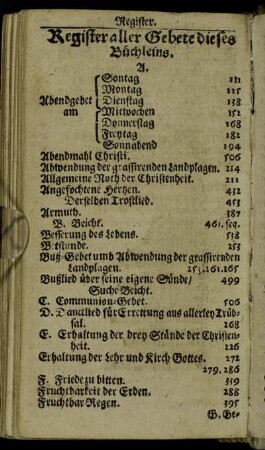 Register.
Register aller Gebete dieses
Büchleins.
A.
Sontag 111
Montag 125
Abendgebet Dienstag 138
am Mittwochen 152
Donnerstag 168
Freytag 182
Sonnabend 194
Abendmahl Christi. 506
Abwendung der grassirenden Landplagen. 214
Allgemeine Noth der Christenheit. 211
Angefochtene Hertzen. 432
Derselben Trostlied. 453
Armuth. 387
B. Beicht. 461. seq.
Besserung des Lebens. 538
Betstunde. 253
Buß-Gebet umb Abwendung der grassirenden
Landplagen. 253. 161. 165
Bußlied über seine eigene Sünde/ 499
Suche Beicht.
C. Communion-Gebet. 506
D. Dancklied für Errettung aus allerley Trüb-
sal. 268
E. Erhaltung der drey Stände der Christen-
heit. 226
Erhaltung der Lehr und Kirch Gottes. 272
279. 286
F. Friede zu bitten. 319
Fruchtbarkeit der Erden. 288
Fruchtbar Regen. 395
G. Ge-